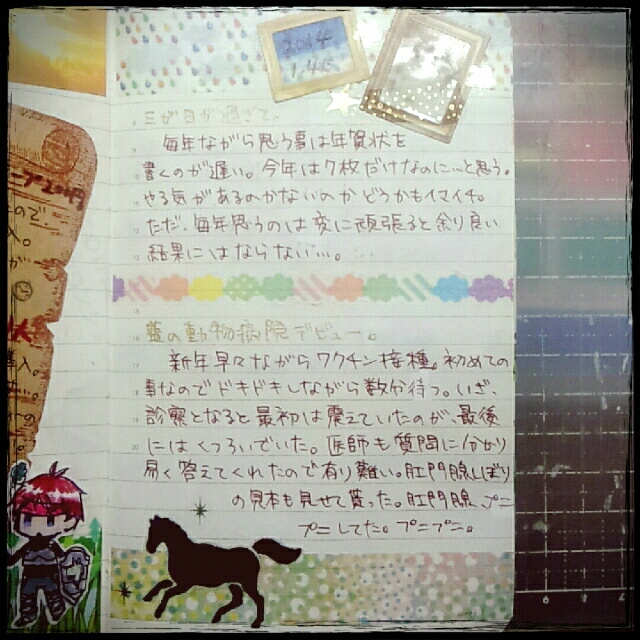 2014
1.4
三が日が過ぎて。
毎年ながら思う事は年賀状を
書くのが遅い。今年は7枚だけなのに…と思う。
やる気があるのかないのか どうかもイマイチ。
ただ、毎年思うのは変に頑張ると余り良い
結果にはならない…。
の動物病院デビュー。
新年早々ながらワクチン接種。初めての
事なのでドキドキしながら数分待つ。いざ、
診察となると最初は震えていたのが、最後
にはくつろいでいた。医師も質問に分かり
易く答えてくれたので有り難い。肛門腺しぼり
の見本も見せて貰った。肛門腺、プニ
プニしてた。プニプニ。
ので
入。
購入。